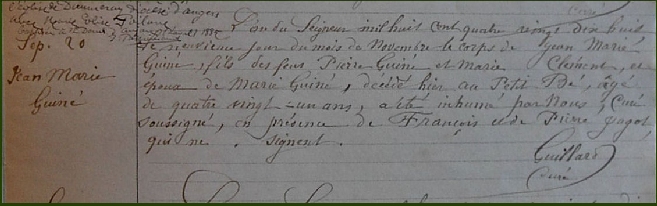 l'église de Diocèse d'angers
avec
Sep. 20
Jean Marie
Guiné
L'an du Seigneur mil huit cent quatre vingt dix huit
le neuvieme jour du mois de Novembre le corps de Jean Marie
Guiné, fils des feus Pierre Guiné et Marie Clement, et
époux de Marie Guiné, décédé hier au Petit Bé, âgé
de quatre vingt-un ans, a été inhumé par Nous, Curé
soussigné, en présence de François et de Pierre Jagot,
qui ne signent.
Guillard
curé